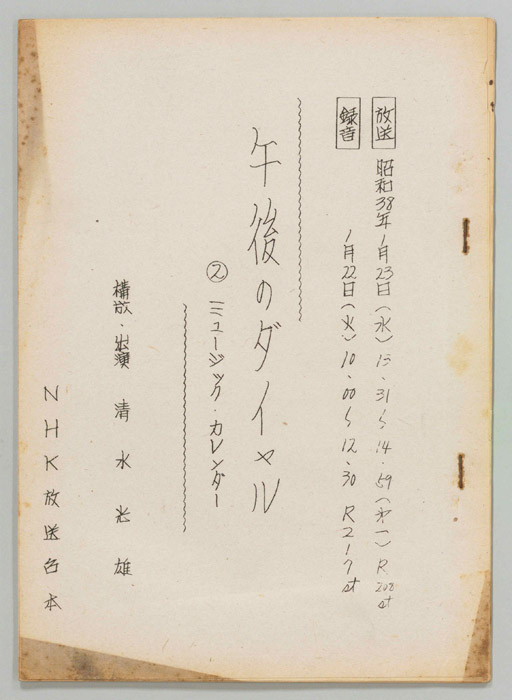 放送 昭和38年1月23日(水)13.31〜14.59(オ一)R 202 st
録音 1月22日(火)10.00〜12.30 R217 st
午後のダイヤル
② ミュージック・カレンダー
構成・出演 清水光雄
NHK放送台本